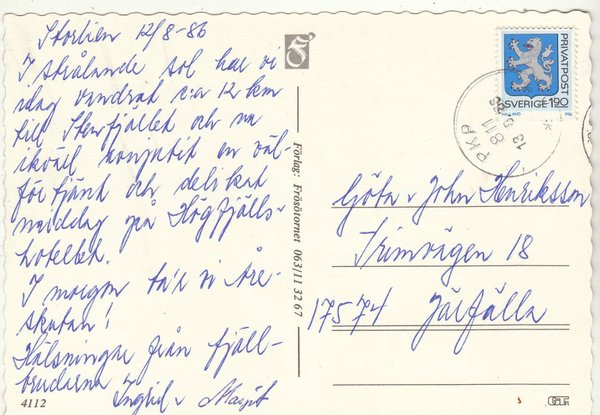 Storlien 12/8-86
I strålande sol har vi
idag vandrat c:a 12 km
till Stenfjället och nu
ikväll avnjutit en väl-
förtjänt och delikat
middag på Högfjälls-
hotellet.
I morgon ta'r vi Åre-
skutan!
Hälsningar från fjäll-
brudarna
Ingrid v Margit
4112
Förlag: Frösötornet 063/11 32 67
PRIVATPOST
SVERIGE 190
PKP
811
13
Göta v John Henriksson
Trimvägen 18
175 74 Järfälla